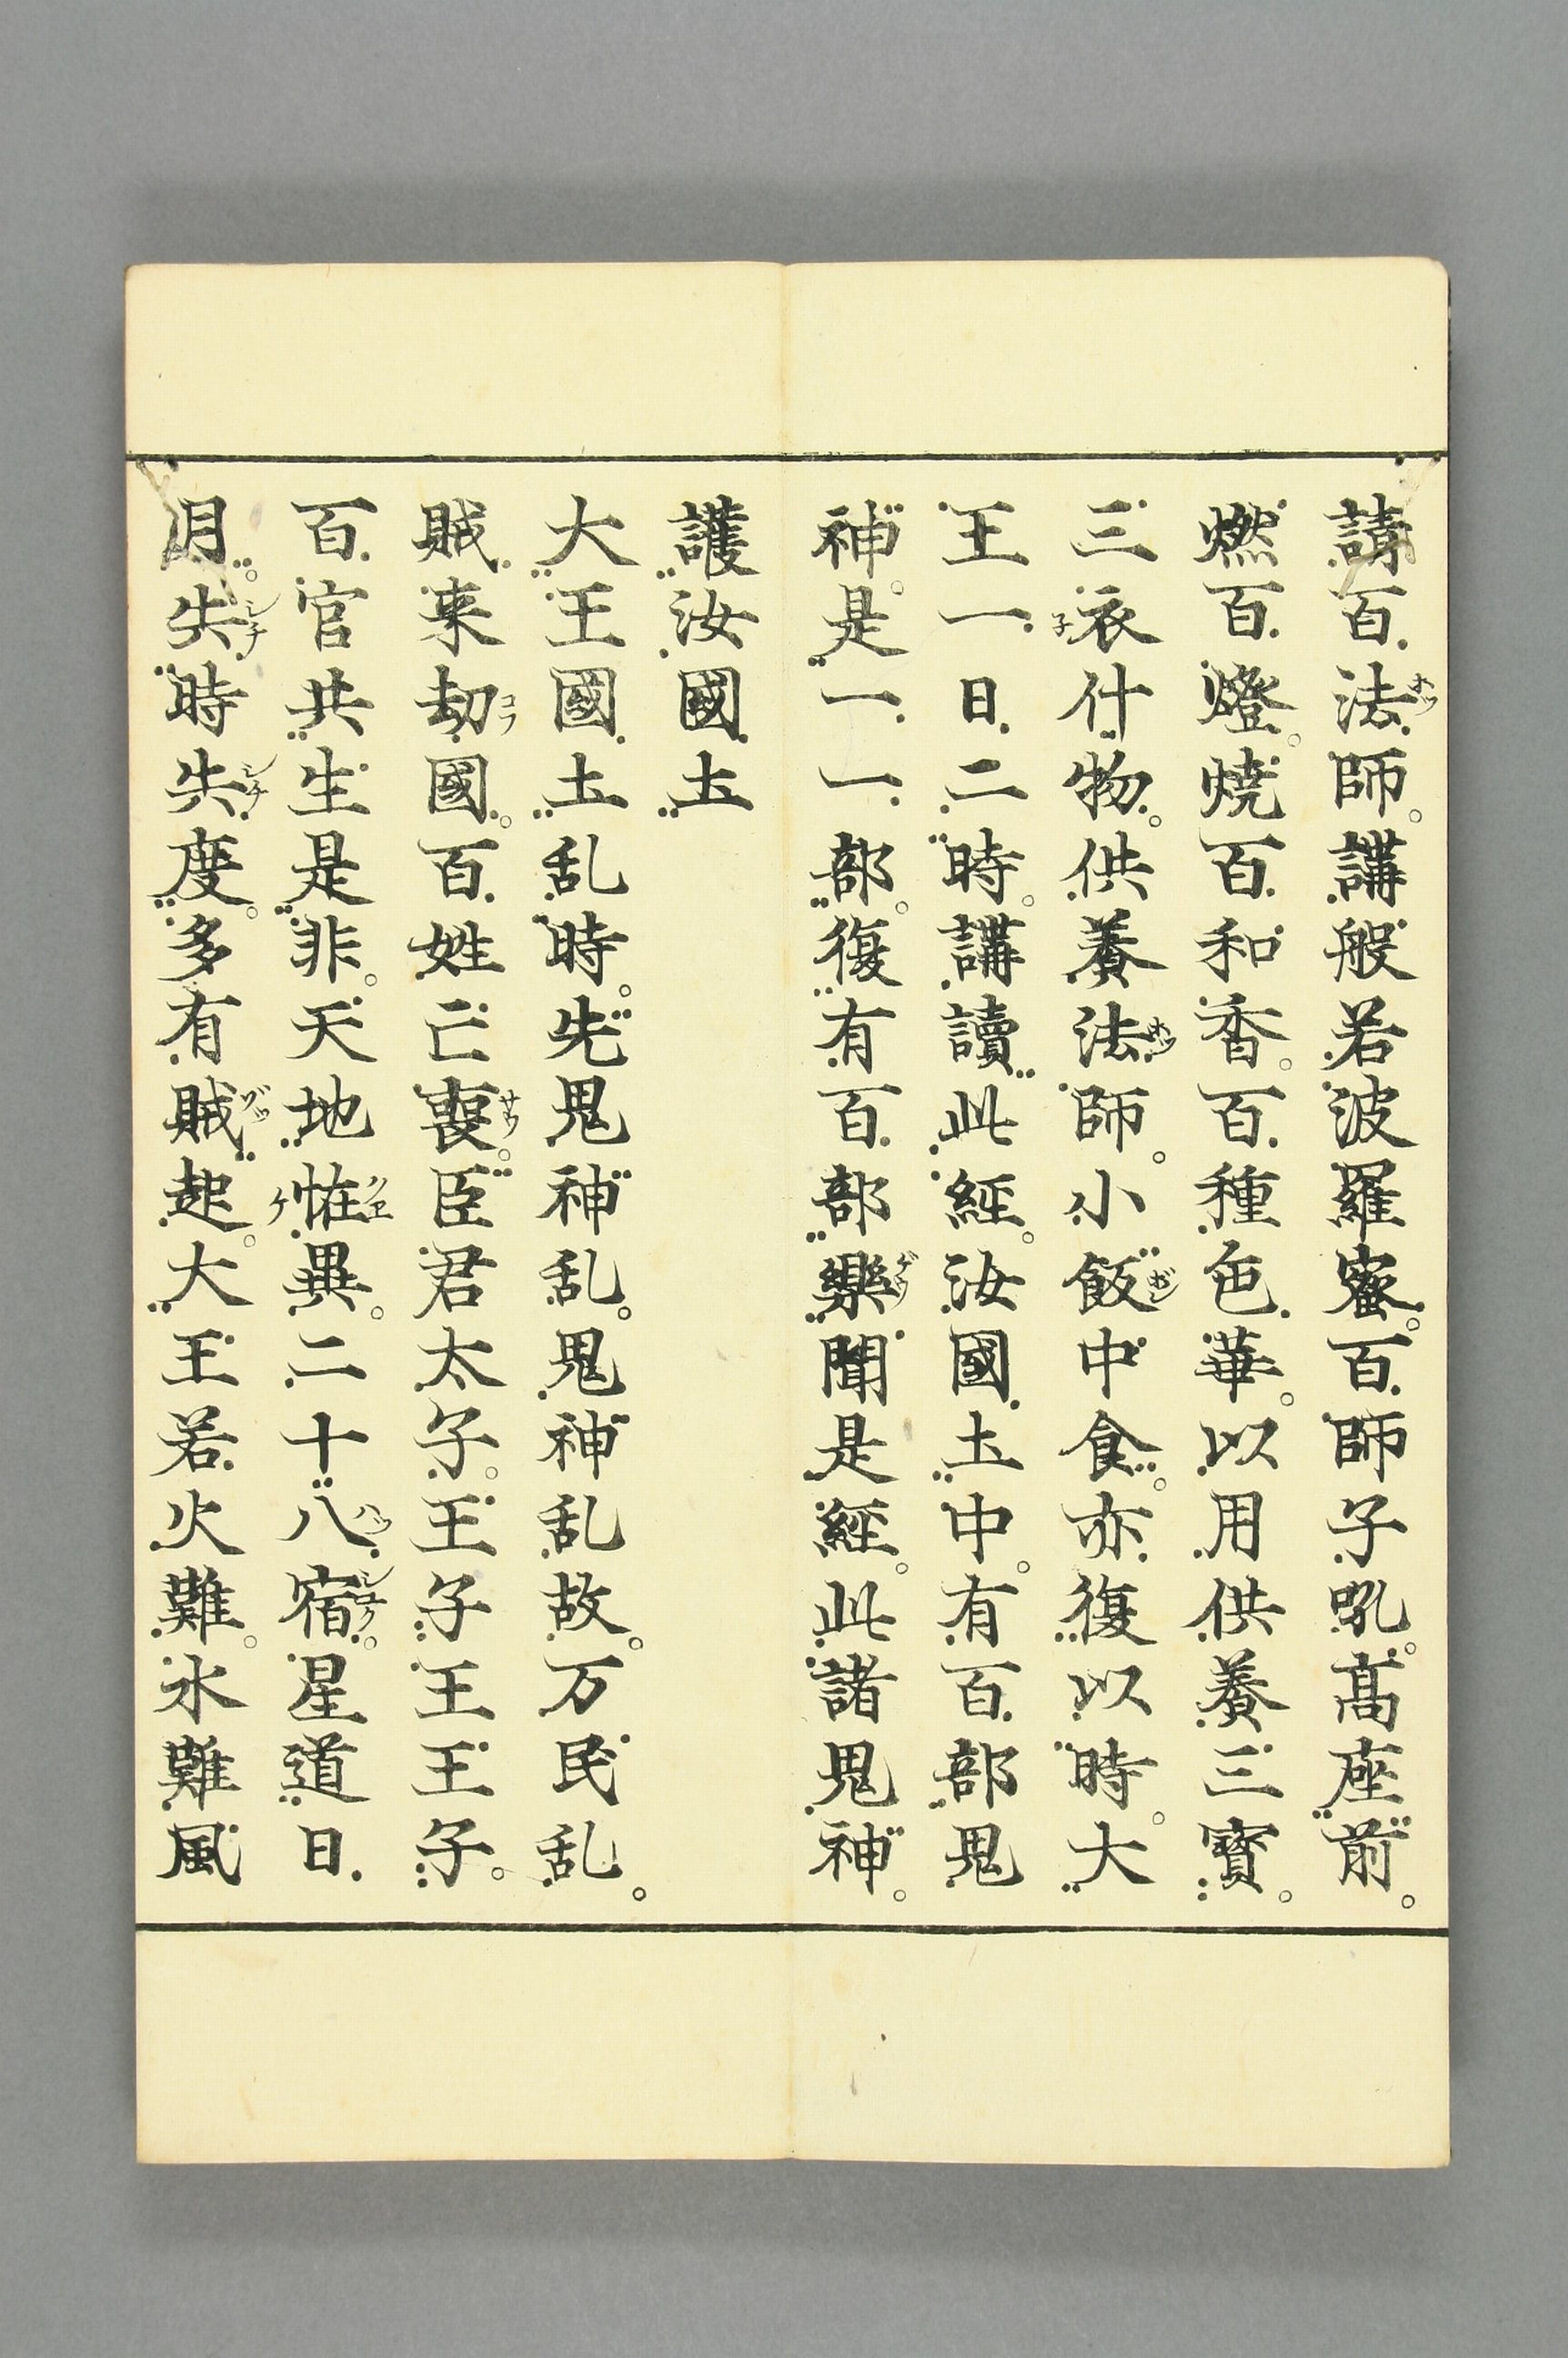 請百法師。講般若波羅蜜。百師子吼。髙座前。
燃百燈。焼百和香。百種色華。以用供養三寳。
三衣什物。供養法師。小飯中食。亦復以時。大
王一日二時。講讀此經。汝國土中。有百部鬼
神。是一一部。復有百部樂聞是經。此諸鬼神。
護汝國土
大王國土乱時。先鬼神乱。鬼神乱故。万民乱。
賊来劫國。百姓亡喪。臣君太子。王子王王子。
百官共生是非。天地恠異。二十八宿。星道日
月。失時失度。多有賊起。大王若火難。水難風